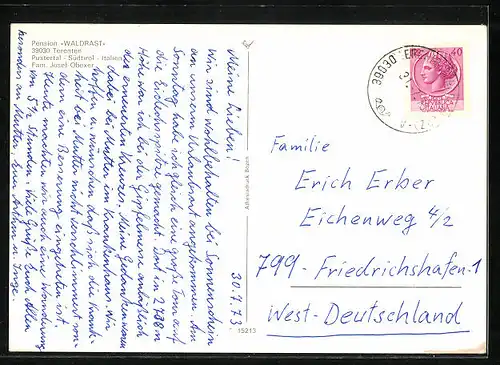 Pension «WALDRAST»
39030 Terenten
Pustertal - Südtirol - Italien
Fam. Josef Obexer
30.7.73
Meine Lieben!
Wir sind wohlbehalten bei Sonnenschein
an unserem Urlaubsort angekommen. Am
Sonntag habe ich gleich eine große Tour auf
die Eidechsspitze gemacht. Dort in 2738 m
Höhe war ich bei der Gipfelmesse anläßlich
des erneuerten Kreuzes. Meine Gedanken waren
dabei bei Mutter im Krankenhaus. Wir
hoffen u. wünschen daß sich die Krank-
heit bei Mutter nicht verschlimmert son-
dern eine Besserung eingetreten ist.
Heute machten wir noch eine Wanderung
von 5½ Stunden. Viele Grüße Euch Allen
besonders an Mutter, Anton u. Inge.
Athesiadruck Bozen
15213
39030
40
Familie
Erich Erber
Eichenweg 4/2
799-Friedrichshafen-1
West-Deutschland